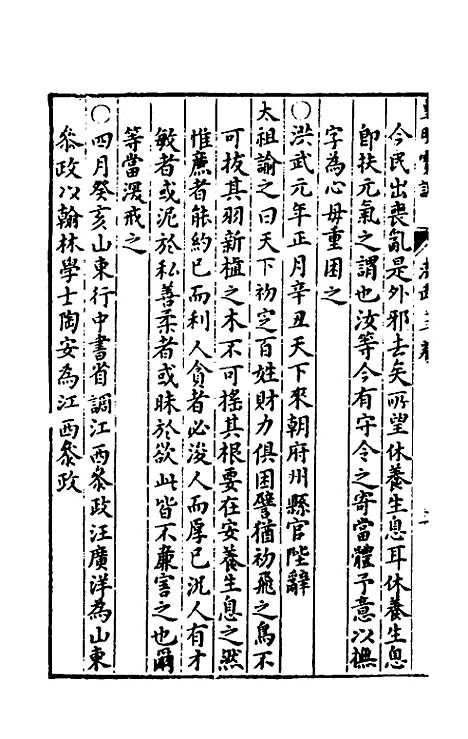 今民出喪亂是外邪去矣所望休養生息耳休養生息
即扶元氣之謂也汝等今有守令之寄當體予意以撫
字為心毋重困之
○洪武元年正月辛丑天下來朝府州縣官陛辭
太祖諭之曰天下初定百姓財力俱困譬猶初飛之鳥不
可拔其羽新植之木不可搖其根要在安養生息之然
惟廉者能約己而利人貪者必浚人而厚己況人有才
敏者或泥於私善柔者或昧於欲此皆不廉害之也爾
等當深戒之
○四月癸亥山東行中書省調江西叅政汪廣洋為山東
叅政以翰林學士陶安為江西叅政